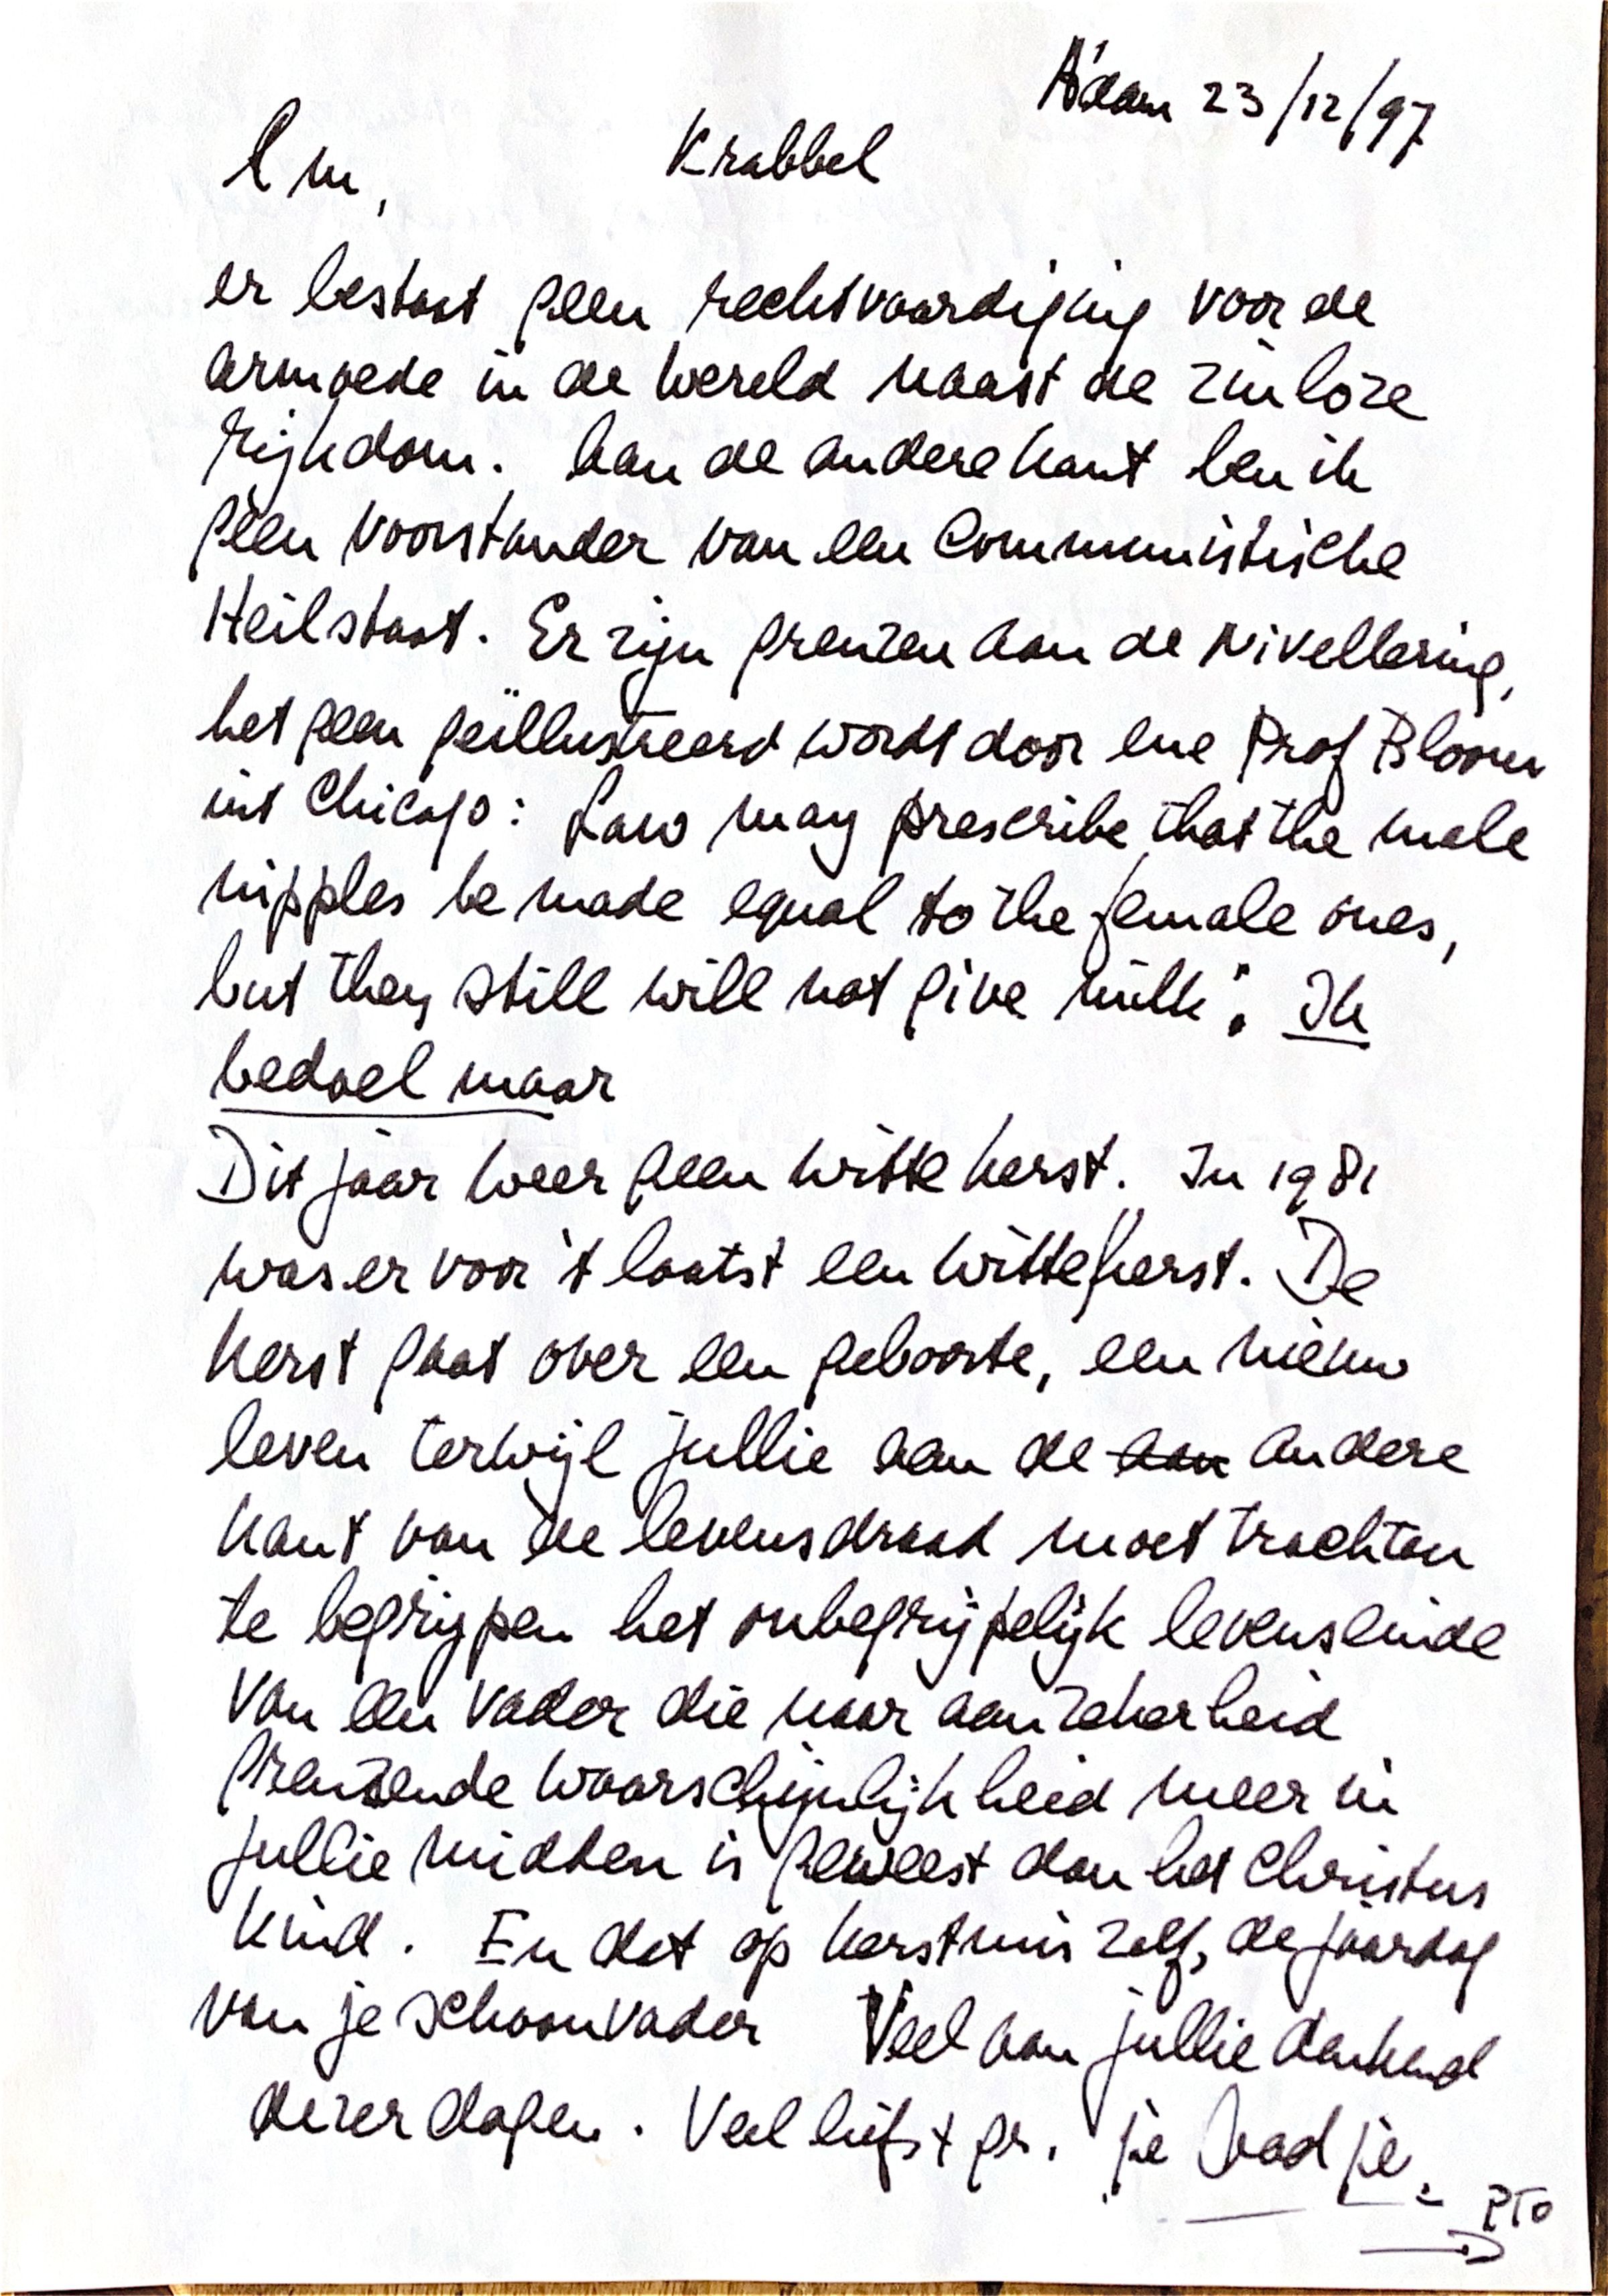 A'dam 23/12/97
Krabbel
er bestaat geen rechtvaardiging voor de
armoede in de wereld naast de zinloze
rijkdom. Aan de andere kant ben ik
geen voorstander van een Communistische
Heilstaat. Er zijn grenzen aan de Nivellering,
het geen geïllustreerd wordt door ene Prof Bloom
uit Chicago: Law may prescribe that the male
nipples be made equal to the female ones,
but they still will not give milk". Ik
bedoel maar
Dit jaar weer geen witte kerst. In 1981
was er voor 't laatst een witte kerst. De
Kerst gaat over een geboorte, een nieuw
leven terwijl jullie aan de aan andere
kant van de levensdraad moet trachten
te begrijpen het onbegrijpelijk levenseinde
van een vader die naar aan zekerheid
grenzende waarschijnlijkheid meer in
jullie midden is geweest dan het Christus
kind. En dat op kerstmis zelf, de jaardag
van je schoonvader Veel aan jullie denkend
dezer dagen. Veel liefst gr. je Vadje.
PTO